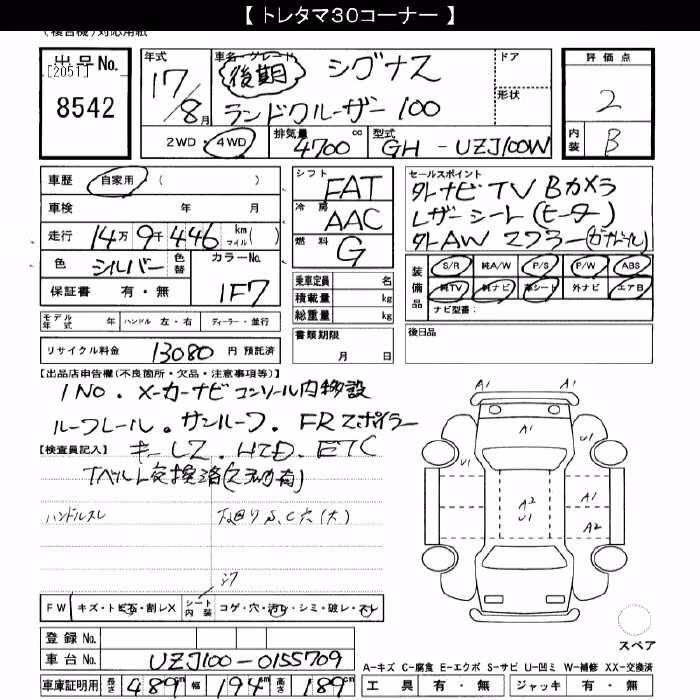 【トレタマ30コーナー】
(複合名)対応用紙
出品No.
[2051]
8542
年式
17/8月
車名・グレード
後期 シグナス
ランドクルーザー100
ドア
形状
評価点
2
内装
B
2WD・4WD
排気量
4700 cc
型式
GH-UZJ100W
車歴 自家用 ( )
車検 年 月
走行 14万9千446 km マイル( )
色 シルバー 色替 カラーNo.
保証書 有・無 1F7
モデル年式 年 ハンドル 左・右 ディーラー・並行
リサイクル料金 13080 円 預託済
シフト FAT
冷房 AAC
燃料 G
乗車定員 名
積載量 kg
総重量 kg
書類期限
月 日
セールスポイント
外ナビ TV Bカメラ
レザーシート(ヒーター)
外AW マフラー(ガナドール)
装備品
S/R 純A/W P/S P/W ABS
純TV 純ナビ 革シート 外ナビ エアB
ナビ型番:
後日品
【出品店申告欄(不良箇所・欠品・注意事項等)】
1No. メーカーナビ コンソール内移設
ルーフレール。サンルーフ. FRスポイラー
【検査員記入】
キーレス. HID. ETC
Tベルト交換済(ステッカー有)
ハンドルスレ
下回りS、C穴(大)
シワ
FW キズ・トビ石・割レX シート内装 コゲ・穴・汚レ・シミ・破レ・スレ
登録No.
車台No. UZJ100-0155709
車庫証明用 長さ 489cm 幅 194cm 高さ 189cm
A1
A1
A1
U1
U1
A2
U1
A1
A2
スペア
A-キズ C-腐食 E-エクボ S-サビ U-凹ミ W-補修 XX-交換済
工具 有・無 ジャッキ 有・無